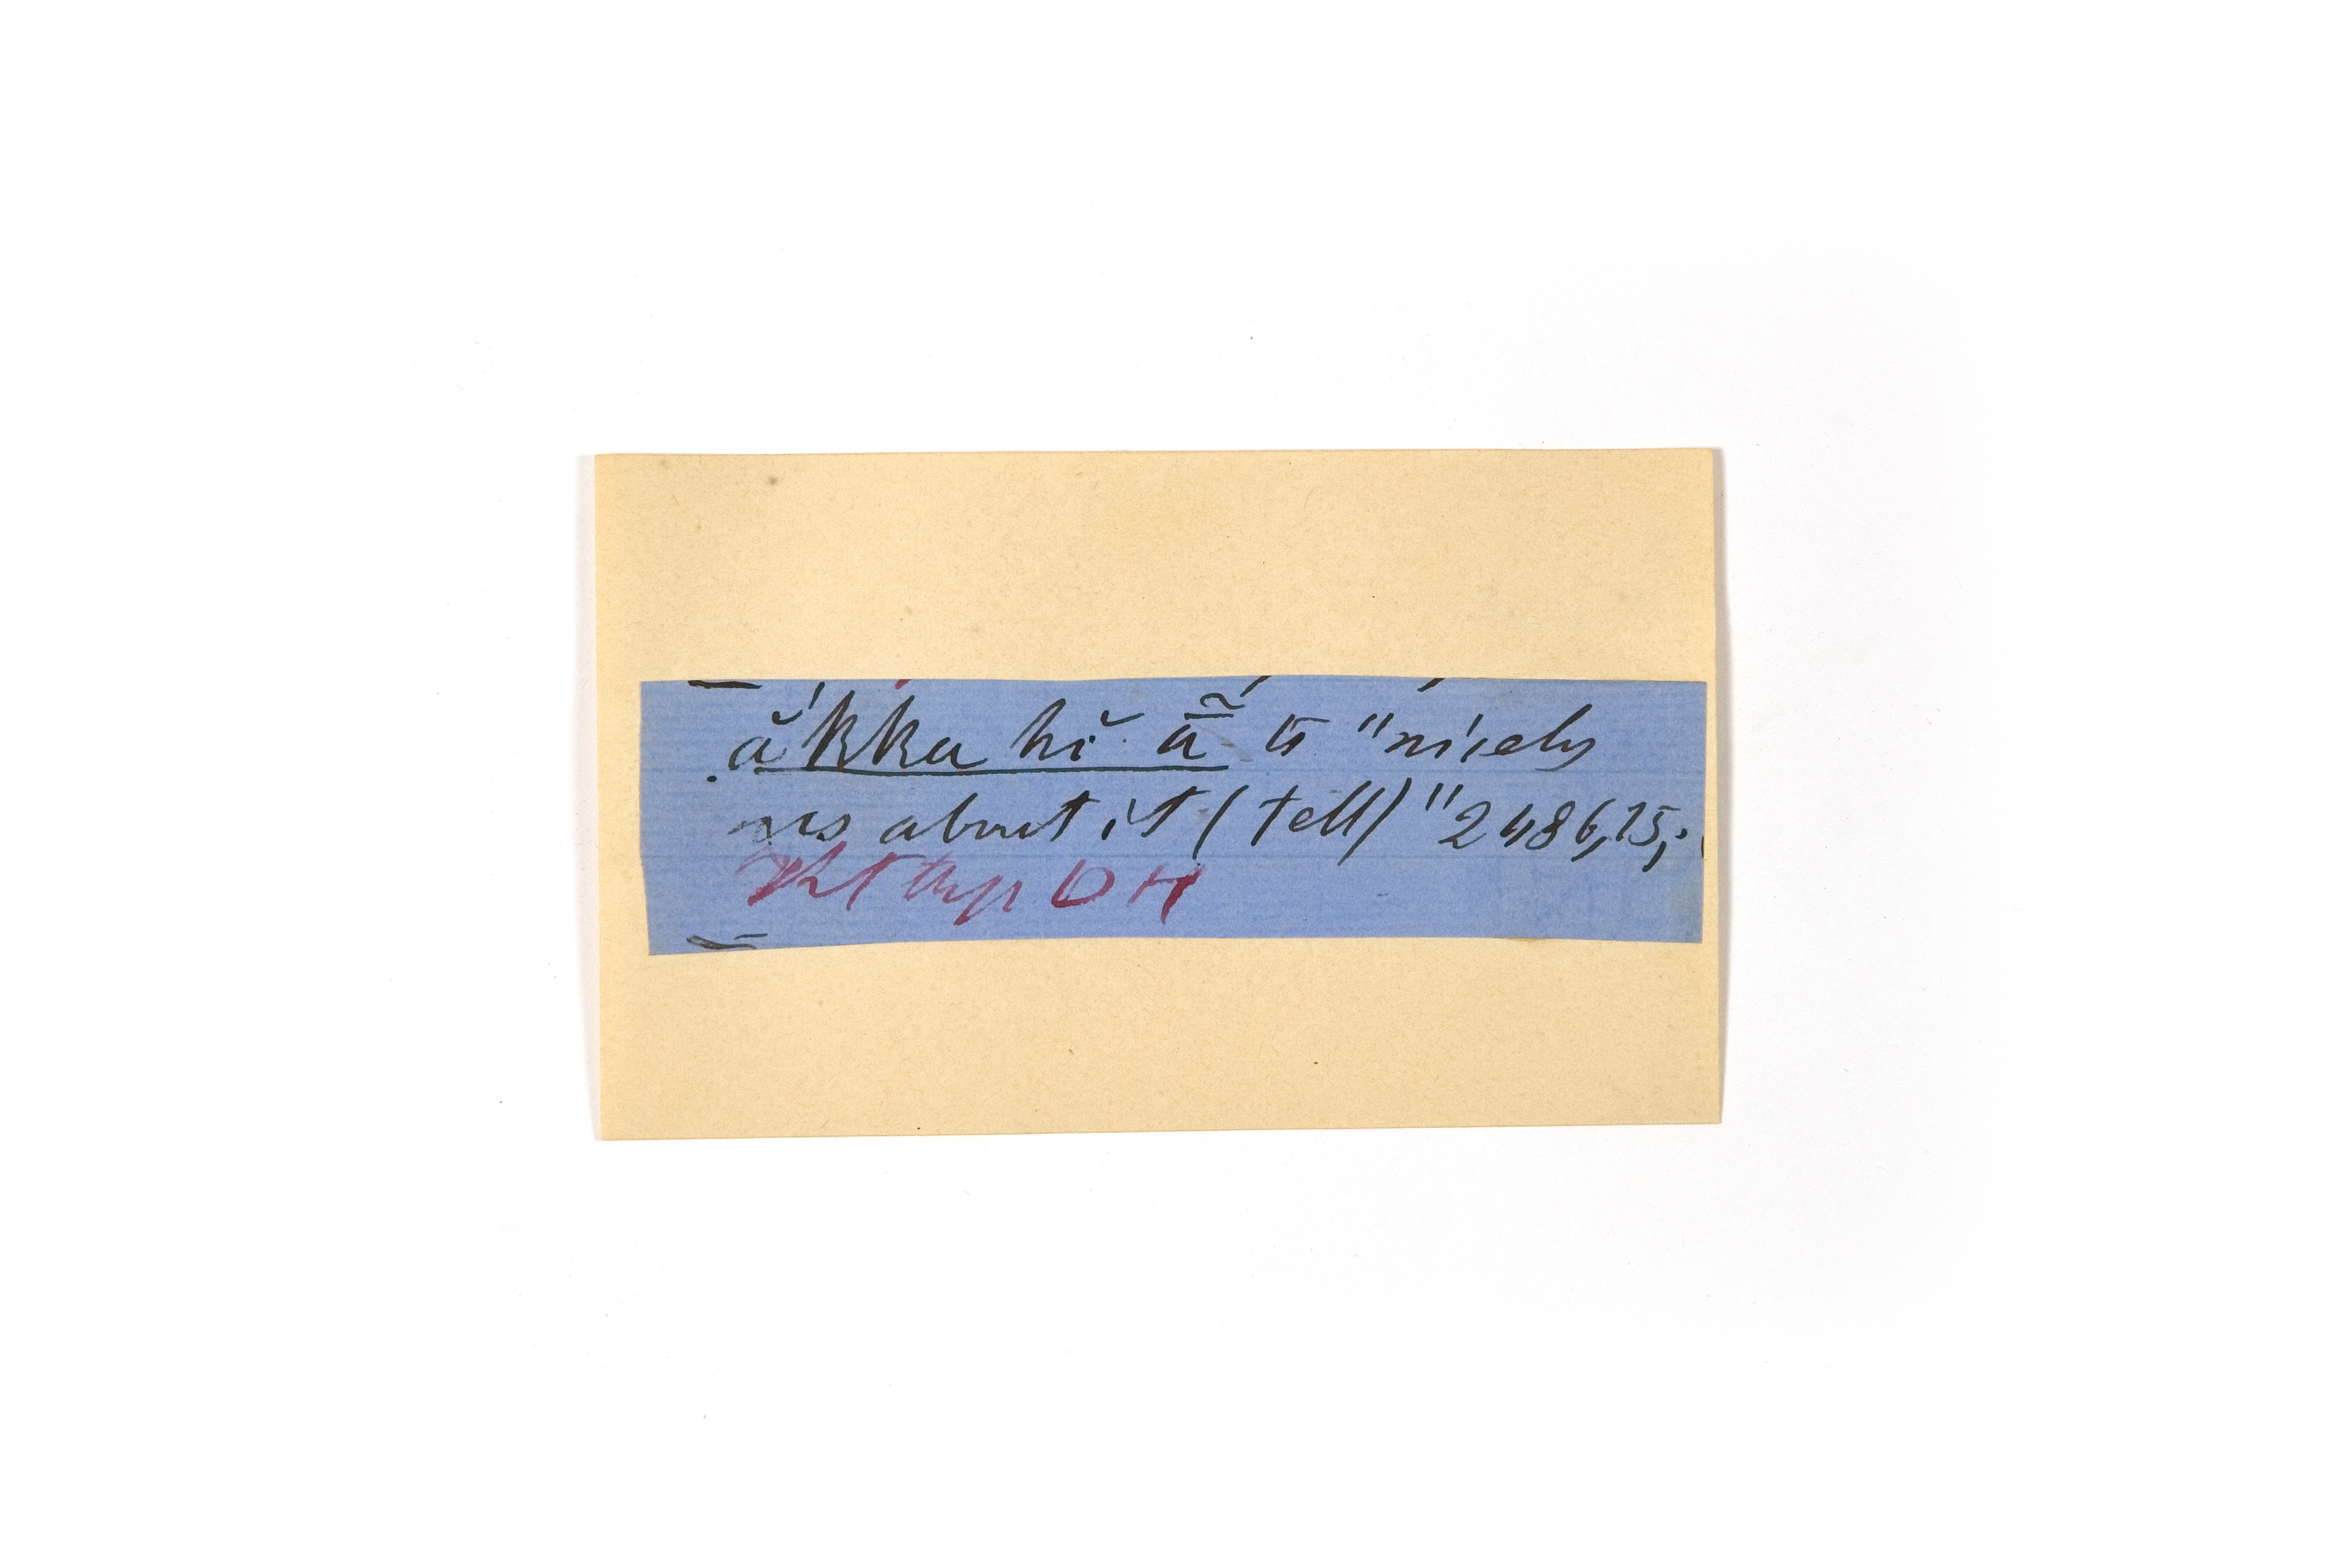 ă'kka hĭ ā̃ ū "nicely
us about it (tell)" 2486,15;
DH